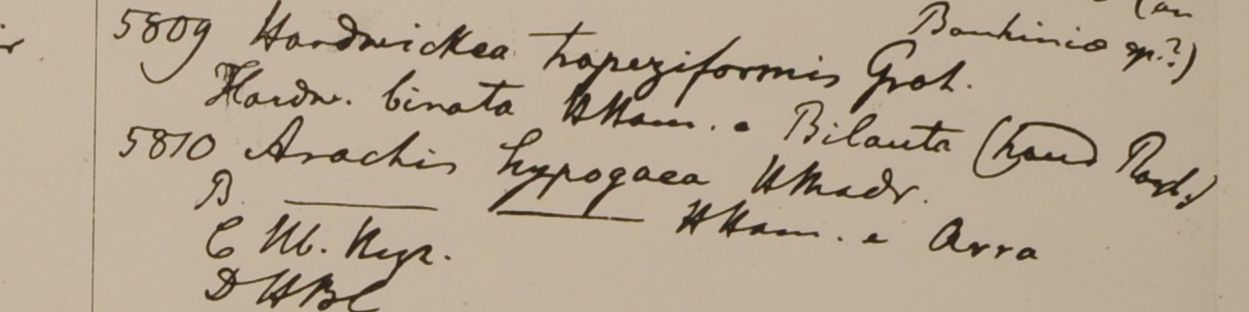 (an
5809 Hardwickea trapeziformis Grah. Bauhiniæ sp.?)
Hardw. binata HHam. e Bilauta (haud Roxb.)
5810 Arachis hypogaea HMadr.
B ——— ——— HHam. e Arra
C Nep.
D HBC